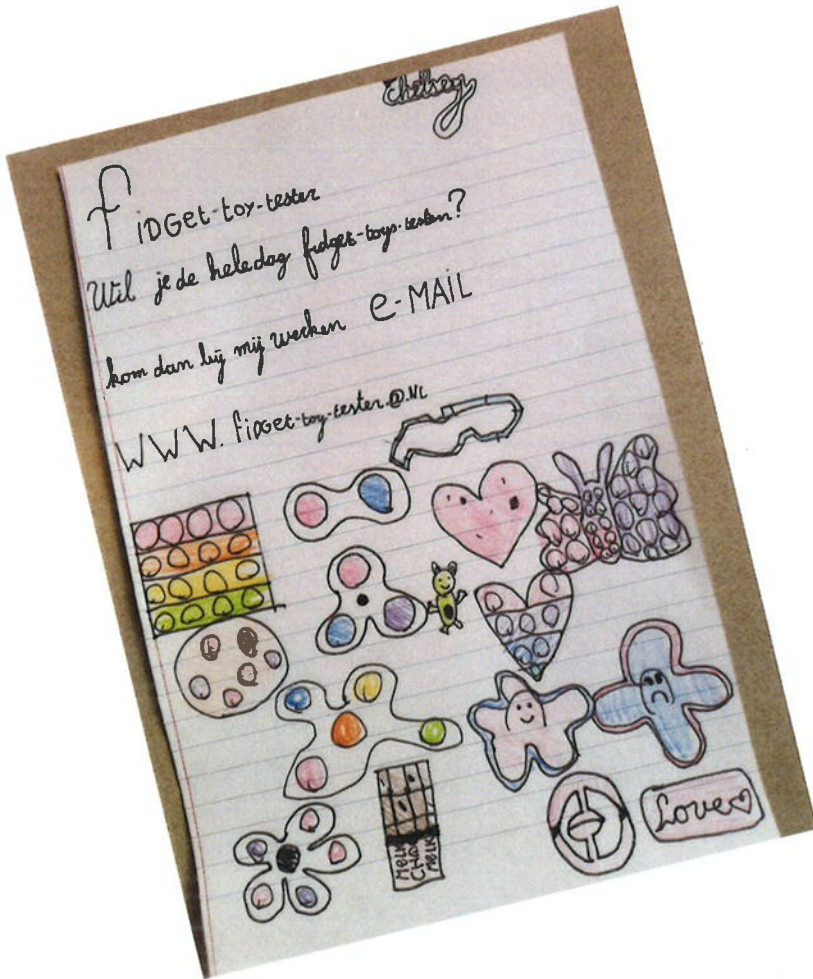 chelsey
fiDGet-toy-tester
Wil je de hele dag fidget-toys-testen?
kom dan bij mij werken e-MAIL
WWW.fiDGet-toy-tester.@.NL
MELK
CHO
MELK
Love